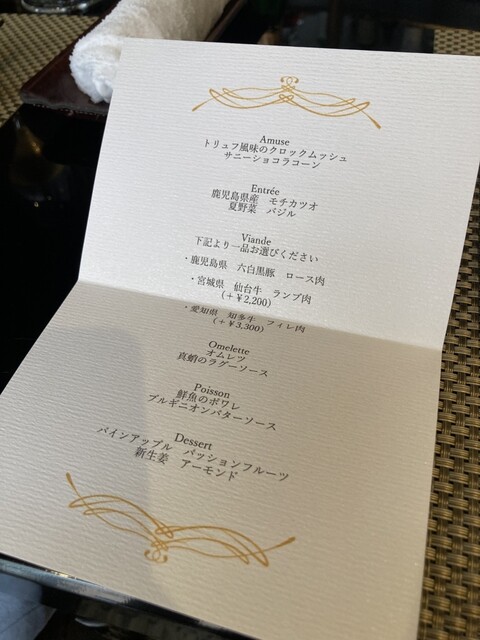 Amuse
トリュフ風味のクロックムッシュ
サニーショコラコーン
Entrée
鹿児島県産 モチカツオ
夏野菜 バジル
Viande
下記より一品お選びください
・鹿児島県 六白黒豚 ロース肉
・宮城県 仙台牛 ランプ肉
(+￥2,200)
・愛知県 知多牛 フィレ肉
(+￥3,300)
Omelette
オムレツ
真蛸のラグーソース
Poisson
鮮魚のポワレ
ブルギニオンバターソース
Dessert
パインアップル パッションフルーツ
新生姜 アーモンド